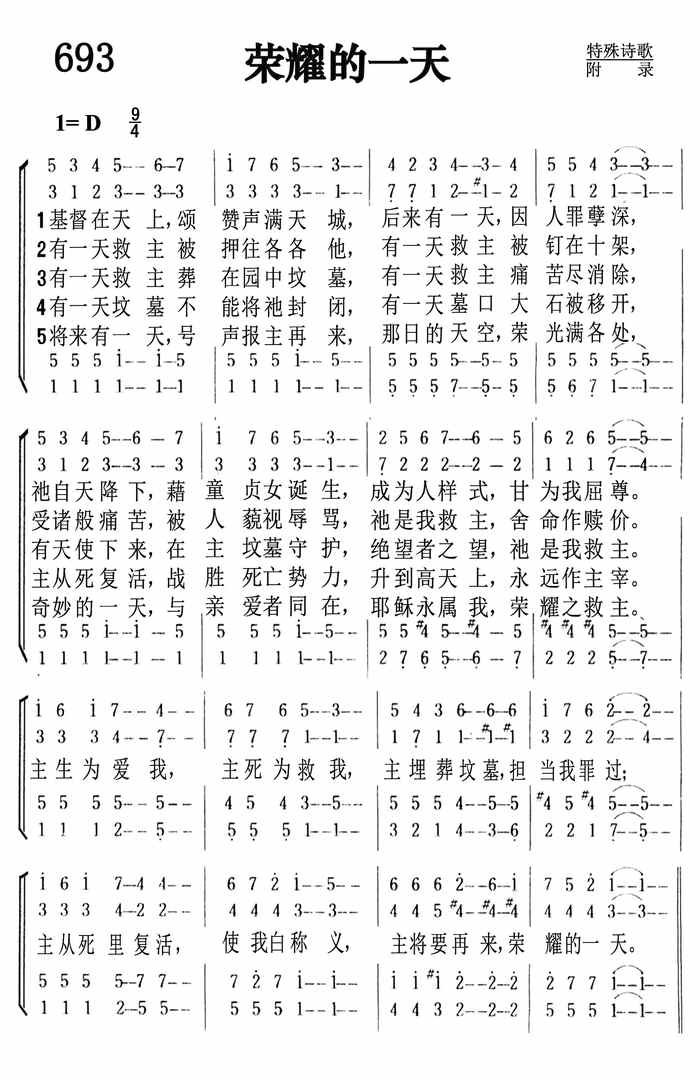 693
荣耀的一天
特殊诗歌
附 录
1= D 9/4
5 3 4 5-- 6-7 | i 7 6 5-- 3-- | 4 2 3 4--3- 4 | 5 5 4 3--3--
3 1 2 3-- 3-3 | 3 3 3 3-- 1-- | 7 7 1 2--#1- 2 | 7 1 2 1--1--
1基督在天上,颂 赞声满天城, 后来有一天,因 人罪孽深,
2有一天救主被 押往各各他, 有一天救主被 钉在十架,
3有一天救主葬 在园中坟墓, 有一天救主痛 苦尽消除,
4有一天坟墓不 能将祂封闭, 有一天墓口大 石被移开,
5将来有一天,号 声报主再来, 那日的天空,荣 光满各处,
5 5 5 i--i-5 | 5 5 5 i-- 5-- | 5 5 5 5--5- 5 | 5 5 5 5--5--
1 1 1 1--1-1 | 1 1 1 1-- 1-- | 5 5 5 7--5- 5 | 5 6 7 1--1--
5 3 4 5--6 - 7 | i 7 6 5--3-- | 2 5 6 7--6 - 5 | 6 2 6 5--5--
3 1 2 3--3 - 3 | 3 3 3 3--1-- | 7 2 2 2--2 - 2 | 1 1 1 7--7--
祂自天降下,藉 童贞女诞生, 成为人样式,甘 为我屈尊。
受诸般痛苦,被 人藐视辱骂, 祂是我救主,舍 命作赎价。
有天使下来,在 主坟墓守护, 绝望者之望,祂 是我救主。
主从死复活,战 胜死亡势力, 升到高天上,永 远作主宰。
奇妙的一天,与 亲爱者同在, 耶稣永属我,荣 耀之救主。
5 5 5 i--i - 5 | 5 5 5 i--5-- | 5 5 #4 5--#4 - 5 | #4 5 #4 5--5--
1 1 1 1--1 - 1 | 1 1 1 1--1-- | 2 7 6 5--6 - 7 | 2 2 2 5--7--
i 6 i 7--4-- | 6 7 6 5--3-- | 5 4 3 6--6-6 | i 7 6 2--2--
3 3 3 4--7-- | 7 7 7 1--1-- | 1 7 1 1--#1-#1 | 3 2 2 2--4--
主生为爱我, 主死为救我, 主埋葬坟墓,担 当我罪过;
5 5 5 5--5-- | 4 5 4 3--5-- | 5 5 5 4--5-5 | #4 5 #4 5--5--
1 1 1 2--5-- | 5 5 5 1--1-- | 3 2 1 4--3-6 | 2 2 1 7--5--
i 6 i 7--4 4 | 6 7 2 i--5-- | 6 6 6 2--6-i | 7 5 2 i--i--
3 3 3 4--2 2 | 4 4 4 3--3-- | 4 4 5 #4--4-#4 | 4 4 4 3--3--
主从死里复活, 使我白称义, 主将要再来,荣 耀的一天。
5 5 5 5--7 7 | 7 2 7 i--5-- | i i #i 2--2-2 | 2 7 7 i--i--
1 1 1 2--5 5 | 5 5 5 1--1-- | 4 4 3 2--2-2 | 5 5 5 1--1--